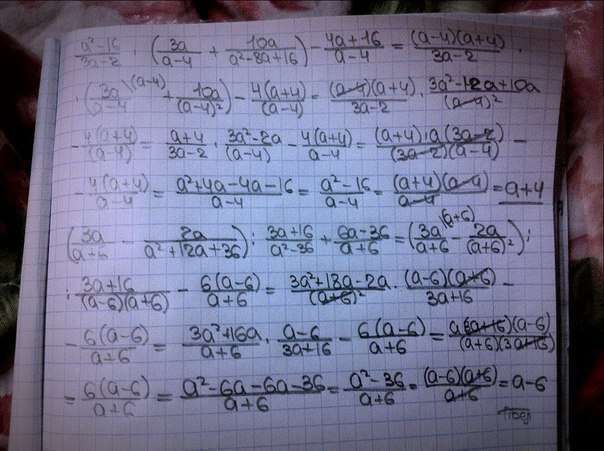 (a²-16)/(3a-2) · (3a/(a-4) + 10a/(a²-8a+16)) - (4a+16)/(a-4) = (a-4)(a+4)/(3a-2) ·
· (3a\(a-4)/(a-4) + 10a/(a-4)²) - 4(a+4)/(a-4) = (a-4)(a+4)/(3a-2) · (3a²-12a+10a)/(a-4)²
- 4(a+4)/(a-4) = (a+4)/(3a-2) · (3a²-2a)/(a-4) - 4(a+4)/(a-4) = (a+4)·a(3a-2)/(3a-2)(a-4) -
- 4(a+4)/(a-4) = (a²+4a-4a-16)/(a-4) = (a²-16)/(a-4) = (a+4)(a-4)/(a-4) = a+4
(3a/(a+6) - 2a/(a²+12a+36)) : (3a+16)/(a²-36) + (6a-36)/(a+6) = (3a\(a+6)/(a+6) - 2a/(a+6)²) :
: (3a+16)/(a-6)(a+6) - 6(a-6)/(a+6) = (3a²+18a-2a)/(a+6)² · (a-6)(a+6)/(3a+16) -
- 6(a-6)/(a+6) = (3a²+16a)/(a+6) · (a-6)/(3a+16) - 6(a-6)/(a+6) = a(3a+16)(a-6)/(a+6)(3a+16)
= 6(a-6)/(a+6) = (a²-6a-6a-36)/(a+6) = (a²-36)/(a+6) = (a-6)(a+6)/(a+6) = a-6